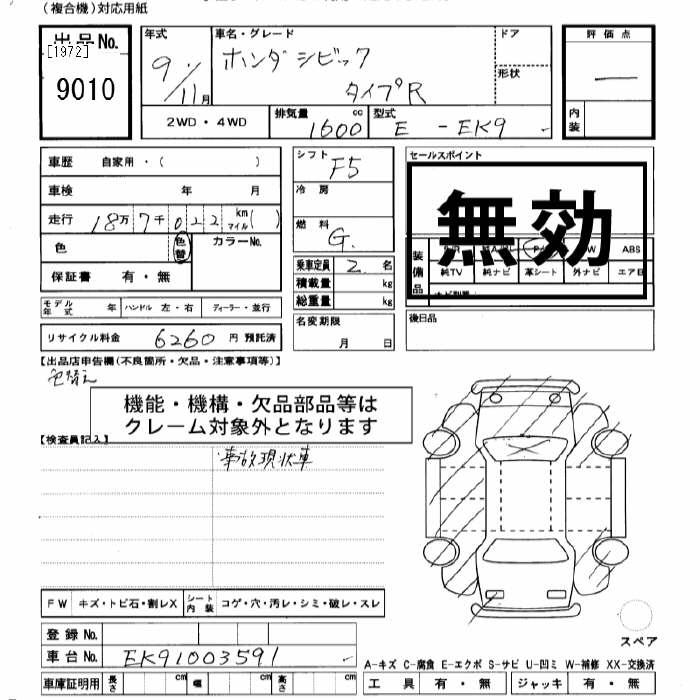 (複合機)対応用紙
出品No.
[1972]
9010
年式
9年
11月
車名・グレード
ホンダ シビック
タイプR
ドア
形状
2WD・4WD
排気量
cc
1600
型式
E - EK9
評価点
内装
車歴 自家用・( )
車検 年 月
走行 18万7千022 km マイル( )
色
色替
カラーNo.
保証書 有・無
モデル年式 年
ハンドル 左・右
ディーラー・並行
リサイクル料金 6260 円 預託済
シフト
F5
冷房
燃料
G.
乗車定員 2 名
積載量 kg
総重量 kg
名変期限
月 日
セールスポイント
無効
装備品
ABS
純TV 純ナビ 革シート 外ナビ エアB
後日品
【出品店申告欄(不良箇所・欠品・注意事項等)】
色替え
機能・機構・欠品部品等は
クレーム対象外となります
【検査員記入】
事故現状車
FW キズ・トビ石・割レX
シート内装 コゲ・穴・汚レ・シミ・破レ・スレ
登録No.
車台No. EK91003591
車庫証明用 長さ cm 幅 cm 高さ cm
スペア
A-キズ C-腐食 E-エクボ S-サビ U-凹ミ W-補修 XX-交換済
工具 有・無 ジャッキ 有・無